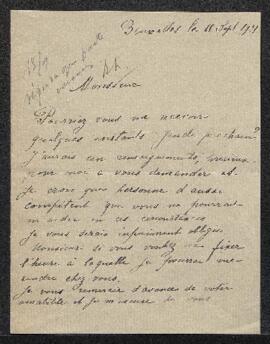 Bruxelles le 11 Sept
13/9
Monsieur
Pourriez vous me recevoir
quelques instants jeudi prochain?
J'aurais un renseignement,
pour moi à vous demander et
je crois que personne d'aussi
compétent que vous ne pourrait
m'aider en ces circonstances
Je vous serais infiniment obligé
Monsieur si vous vouliez me fixer
l'heure à laquelle je pourrais me
rendre chez vous.
Je vous remercie d'avance de votre
amabilité et je m'excuse de vous